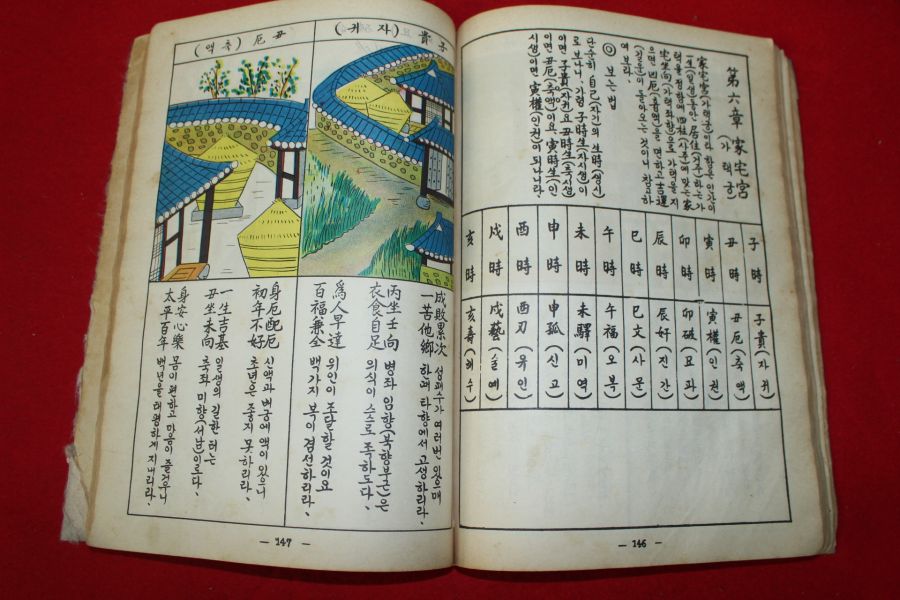 第六章 家宅宮
(가택궁)
家宅宮(가택궁)이라 함은 인간이
一生(일생)동안 居住(거주)하는 가
택을 점함에 四柱(사주)에 맞는 家
宅坐向(가택좌향)으로 가택을 지
으면 凶厄(흉액)을 면하고 吉運
(길운)이 돌아오는 것이니 참고하
여 보라.
◎ 보는 법
단순히 自己(자기)의 生時(생시)
로 보나니, 가령 子時生(자시생)이
이면 子貴(자귀)요 丑時生(축시생)
이면 丑厄(축액)이요, 寅時生(인
시생)이면 寅權(인권)이 되나니라.
子時 子貴(자귀)
丑時 丑厄(축액)
寅時 寅權(인권)
卯時 卯破(묘파)
辰時 辰奸(진간)
巳時 巳文(사문)
午時 午福(오복)
未時 未驛(미역)
申時 申孤(신고)
酉時 酉刃(유인)
戌時 戌藝(술예)
亥時 亥壽(해수)
— 146 —
子貴 (자귀)
成敗累次 성패수가 여러번 있으매
一苦他鄕 하여 타향에서 고생하리라.
丙坐壬向 병좌 임향(북향부근)은
衣食自足 의식이 스스로 족하도다.
爲人早達 위인이 조달할 것이요
百福兼全 백가지 복이 겸전하리라.
丑厄 (축액)
身厄配厄 신액과 배궁에 액이 있으니
初年不好 초년은 좋지 못하리라.
一生吉基 일생의 길한 터는
丑坐未向 축좌 미향(서남)이로다.
身安心樂 몸이 편하고 마음이 즐거우니
太平百年 백년을 태평하게 지내리라.
— 147 —